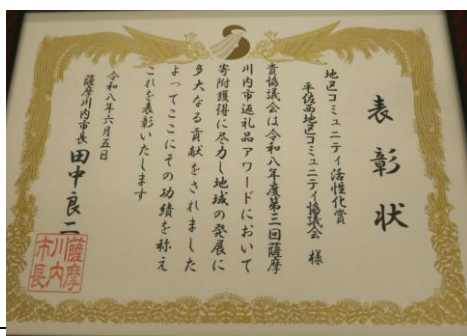 表彰状
地区コミュニティ活性化賞
平佐西地区コミュニティ協議会 様
貴協議会は令和八年度第三回薩摩
川内市返礼品アワードにおいて
寄附獲得に尽力し地域の発展に
多大なる貢献をされました
よってここにその功績を称え
これを表彰いたします
令和八年六月五日
薩摩川内市長 田中良二
薩摩川内市長